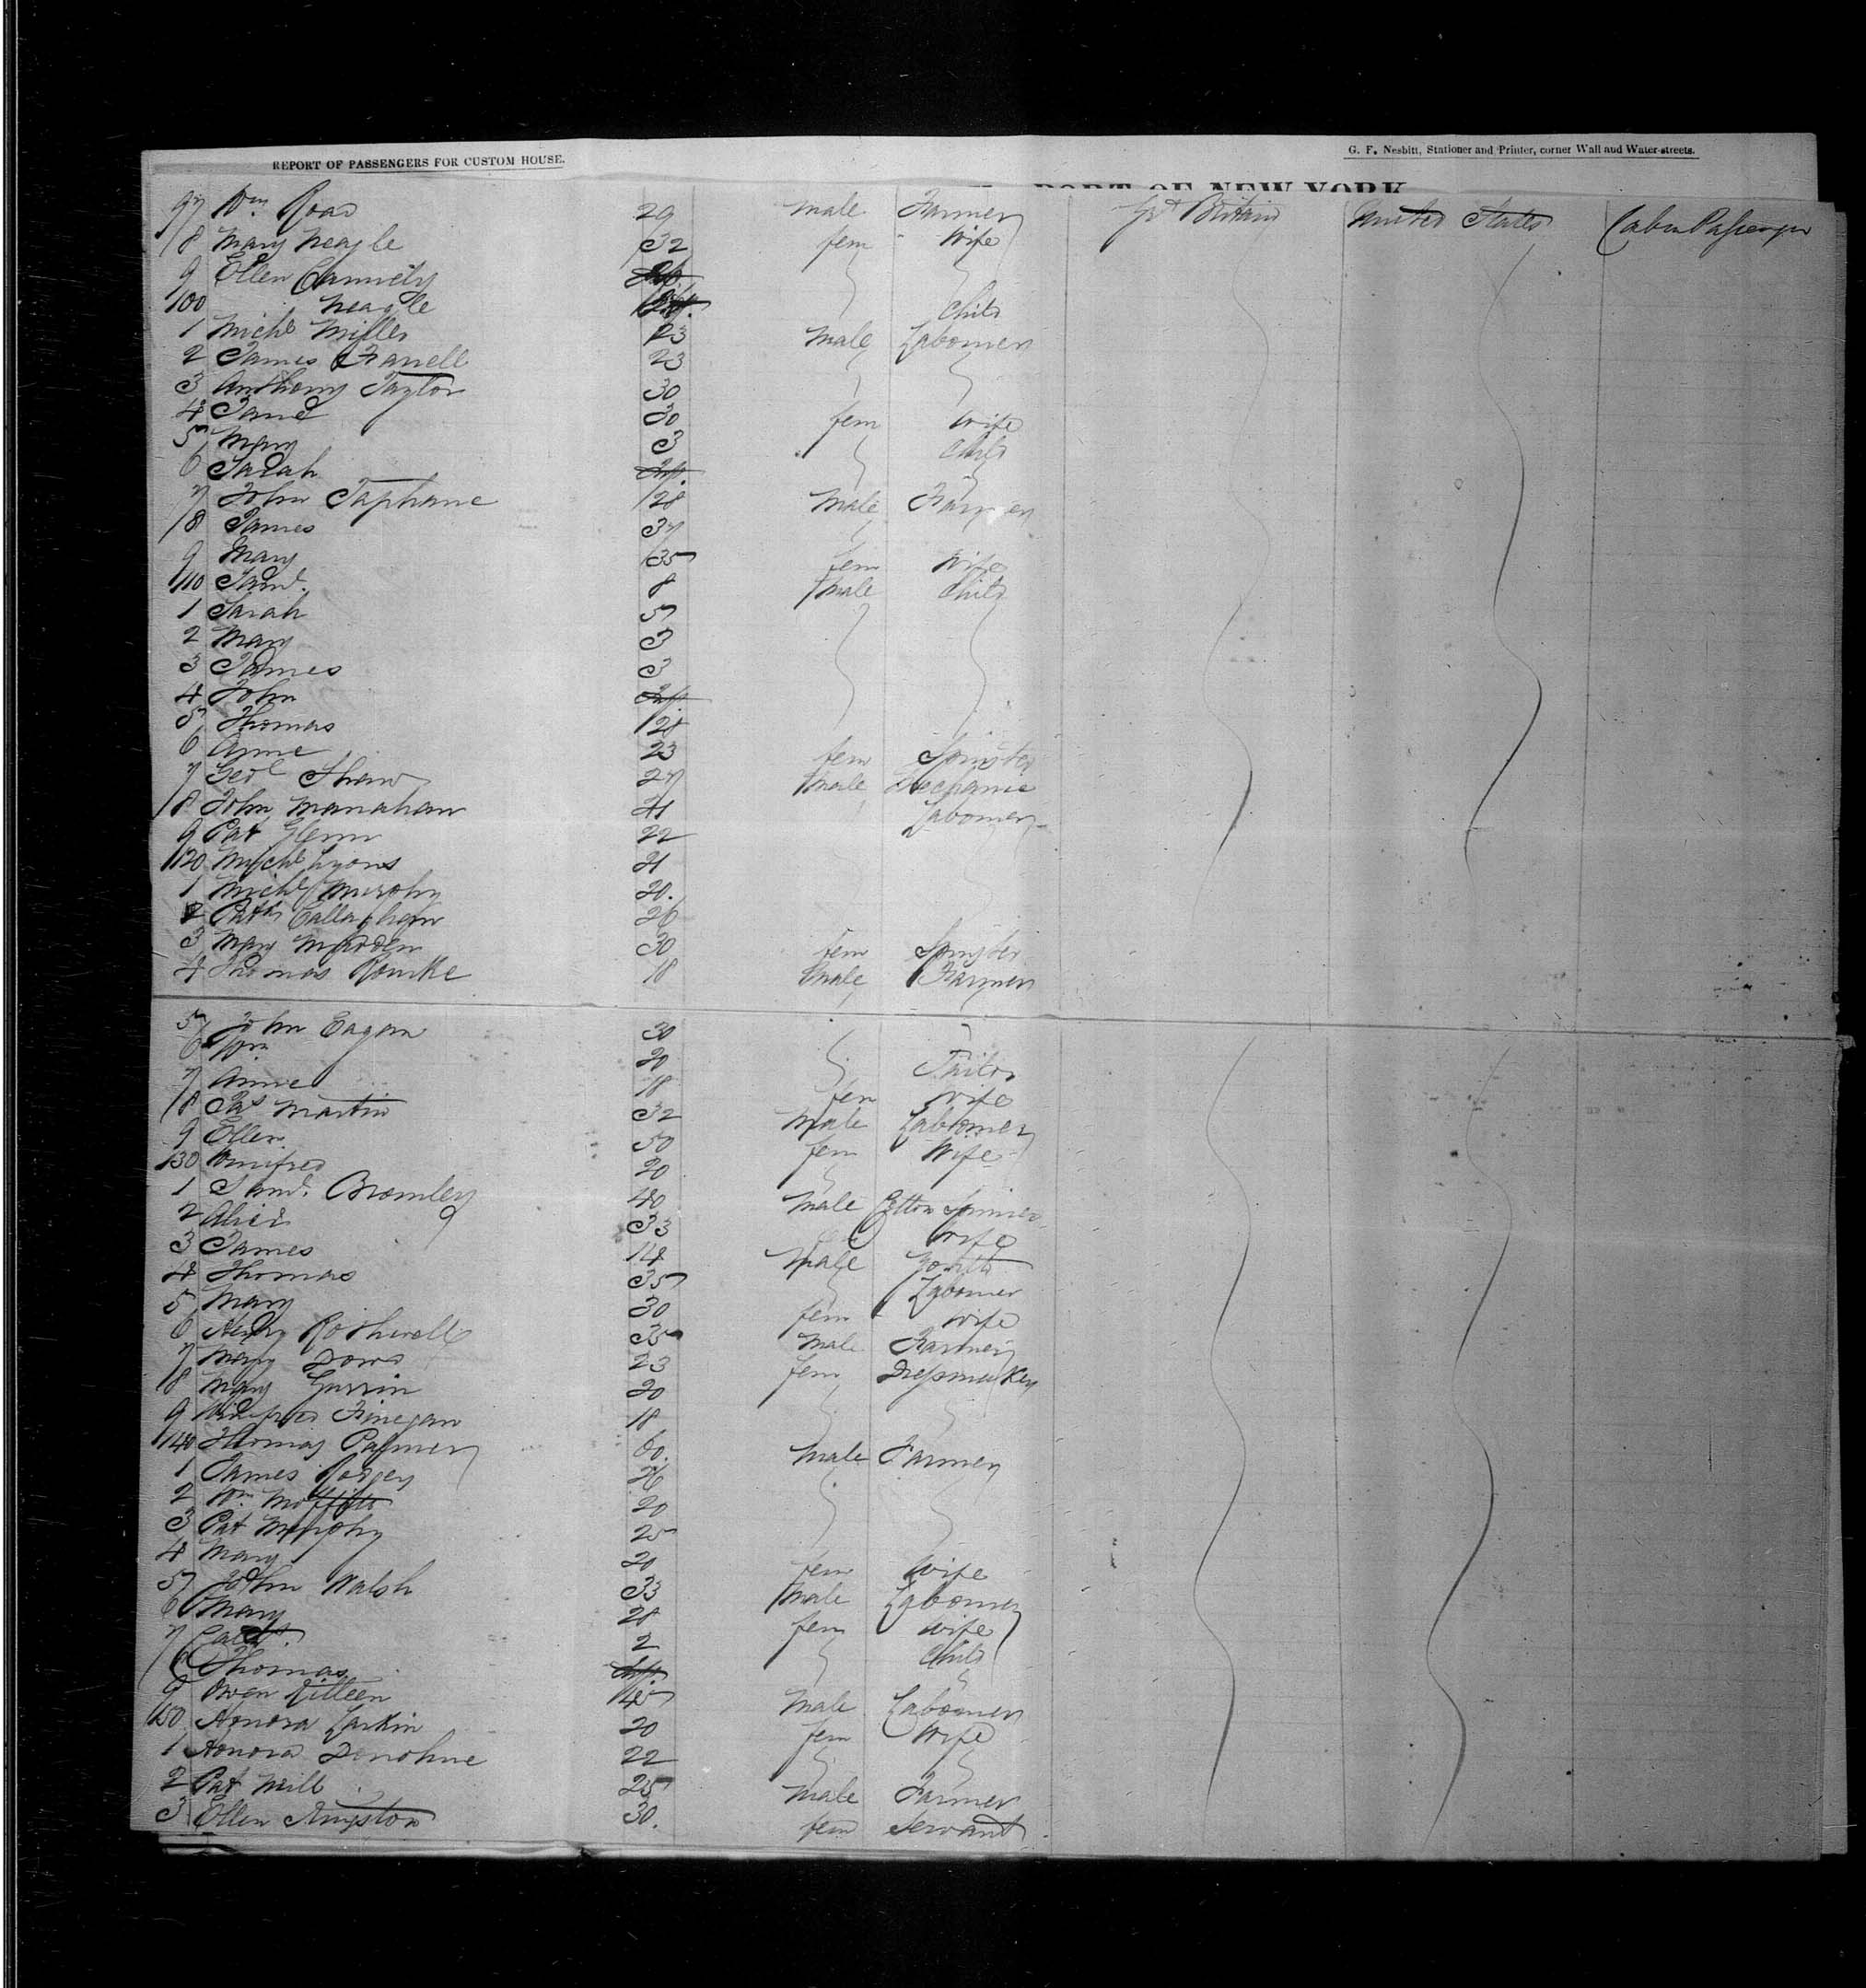 REPORT OF PASSENGERS FOR CUSTOM HOUSE.
G. F. Nesbitt, Stationer and Printer, corner Wall and Water-streets.
PORT OF NEW YORK
97 Wm Road 29 male Farmer Gt Britain United States Cabin Passenger
8 Mary Neagle 32 fem wife
9 Ellen
100 Neagle Child
1 Michl Miller 23 Male Labourer
2 James Farrell 23
3 Anthony Taylor 30
4 Jane 30 fem wife
5 Mary 3 Child
6 Sarah Inf.
7 John Taphane 28 Male Farmer
8 James 37
9 Mary 35 fem wife
110 Saml. 8 male Child
1 Sarah 5
2 Mary 3
3 James 3
4 John Inf.
5 Thomas 28
6 Anne 23 fem Spinster
7 Geo Shaw 27 male Mechanic
8 John Manahan 21 Labourer
9 Pat Glenn 22
120 Michl Lyons 21
1 Michl Murphy 20.
2 Patk Callaghan 26
3 Mary 30 fem Spinster
4 Thomas Rourke 18 male Farmer
5 John Eagan 30
6 Wm 20
7 Anne 18 fem wife
8 Pat Martin 32 Male Labourer
9 Ellen 50 fem Wife
130 Winifred 20
1 Saml. Bromley 40 male Cotton Spinner
2 Alice 33 wife
3 James 14 Male Youth
4 Thomas 35 Labourer
5 Mary 30 fem wife
6 Henry Rothwell 35 male Farmer
7 Mary Dowd 23 fem Dressmaker
8 Mary 20
9 Winifred Finegan 18
140 Thomas Palmer 60. Male Farmer
1 James 26
2 Wm Moffitt 20
3 Pat Murphy 25
4 Mary 20 fem wife
5 John Walsh 33 male Labourer
6 Mary 28 fem wife
7 2 Child
8 Thomas Inf
9 Owen Killeen 45 Male Labourer
150 Honora Larkin 20 fem Wife
1 Honora Donohue 22
2 Pat Mill 25 Male Farmer
3 Ellen Kingston 30. fem Servant